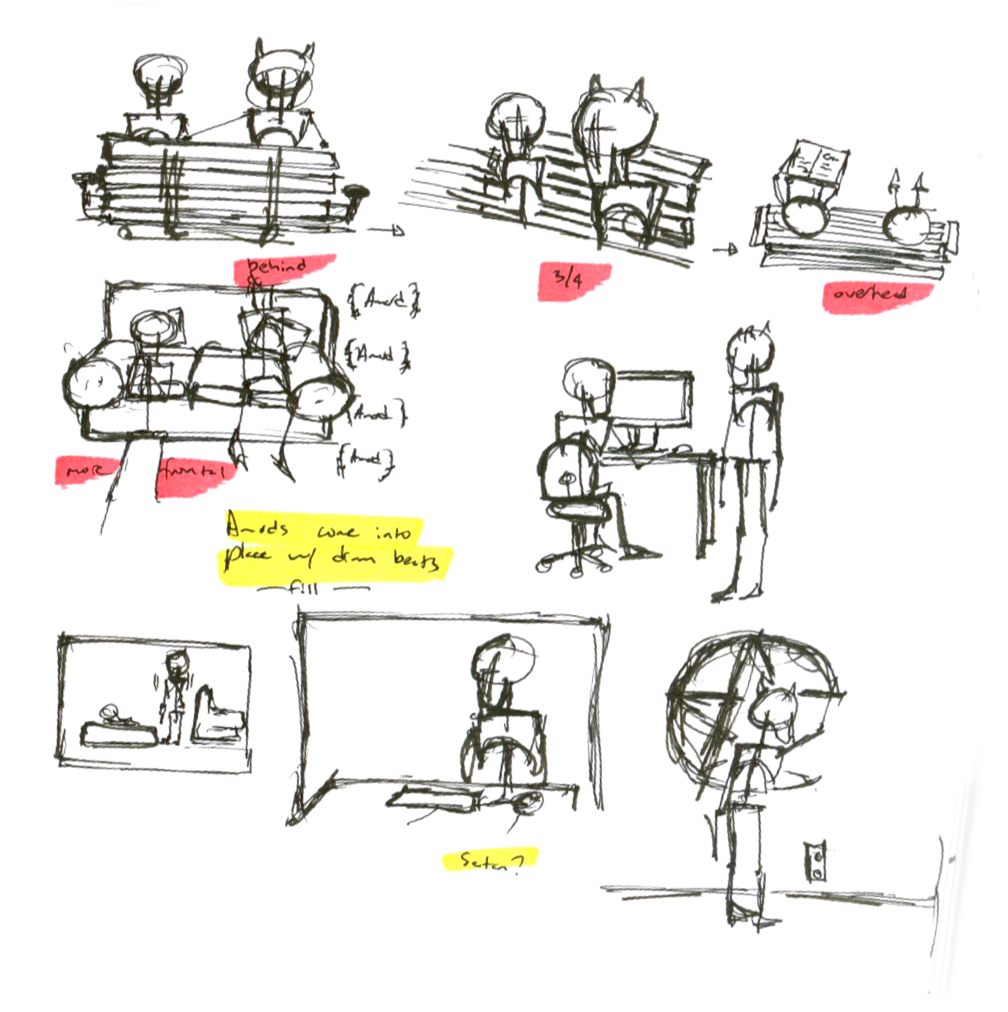 behind
3/4
overhead
{Award}
{Award}
{Award}
{Award}
more frontal
Awards come into
place w/ drum beats
— fill —
Satan?